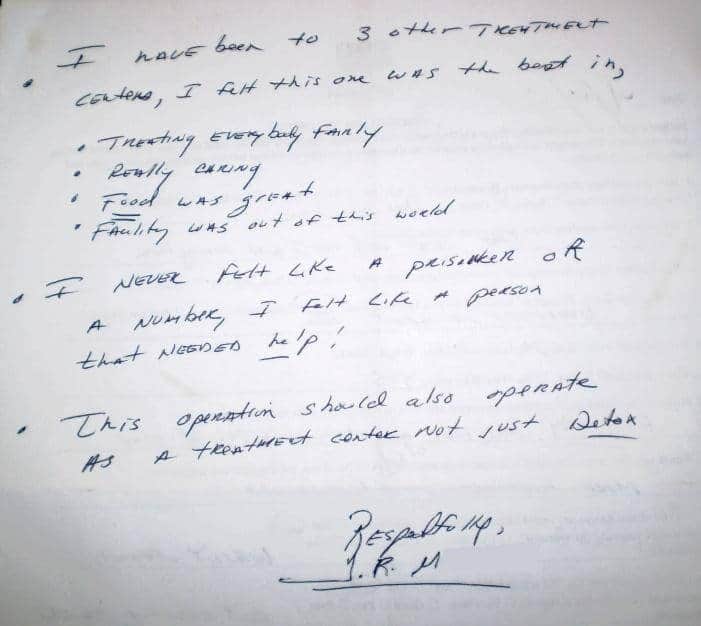 • I HAVE been to 3 other TREATMENT
CENTERS, I felt this one WAS the best in,
• TREATING EVERYbody FAIRly
• REAlly CARING
• Food WAS great
• FAcility WAS out of this world
• I NEVER felt Like A prisoneR oR
A NUMbeR, I felt Like A person
that NEEDED help!
• This operation should also operate
AS A treatment center not just Detox
Respectfully,
J. R. M